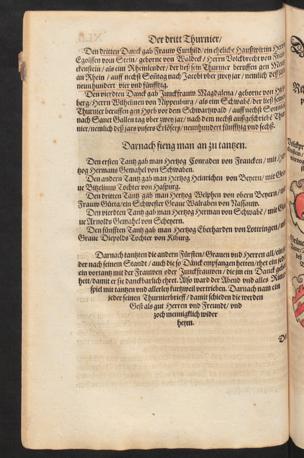 Der dritt Thurnier/
Den dritten Danck gab Frauw Cunhild/ ein eheliche Haußfrauw Herrn
Egolffen vom Stein/ geborne von Waldeck/ Herrn Wolckrecht von Franckenstein/ als ein Rheinlender/ der ließ sein Thurnier beruffen gen
an Rhein/ auff nechst Sontag nach Jacobi uber zwey jar/ nemlich deß
neunhundert vier und fünfftzig.
Den vierdten Danck gab Junckfrauw Magdalena/ geborne von
berg/ Herrn Wilhelmen von Nippenburg/ als ein Schwabe/ der ließ seinen
Thurnier beruffen gen Horb vor dem Schwartzwald/ auff nechst Sontag
nach Sanct Gallen tag uber zwey jar/ nach dem nechst außgeschriebē
nier/ nemlich deß jars unsers Erlösers/ neunhundert fünfftzig und sechß.
Darnach fieng man an zu tantzen.
Den ersten Tantz gab man Hertzog Conraden von Francken/ mit
tzog Hermans Gemahel von Schwaben.
Den andern Tantz gab man Hertzog Heinrichen von Beyern/ mit
Tochter von Hapurg.
Den dritten Tantz gab man Hertzog Welphen von obern Beyern/
Frauw Güta/ ein Schwester Graue Walraben von Nassauw.
Den vierdten Tantz gab man Hertzog Herman von Schwabē/ mit
ue Arnolds Gemahel von Scheyern.
Den fünfften Tantz gab man Hertzog Eberharden von Lotringen/
Graue Diepolds Tochter von Kiburg.
Darnach tantzten die andern Fürsten/ Grauen und Herren all/
der nach seinem Standt/ auch die so Dänck empfangen hetten/
ein vortantz mit der Frauwen oder Junckfrauwen/ die jm ein Danck
hett/ damit er sie danckbarlich ehret. Also ward der Abend und alles
spiel mit tantzen und allerley kurtzweil vertrieben. Darnach nam ein
jeder seinen Thurnierbrieff/ damit schieden die werden
Gest als gut Herren und Freundt/ und
zoch menniglich wider
heym.